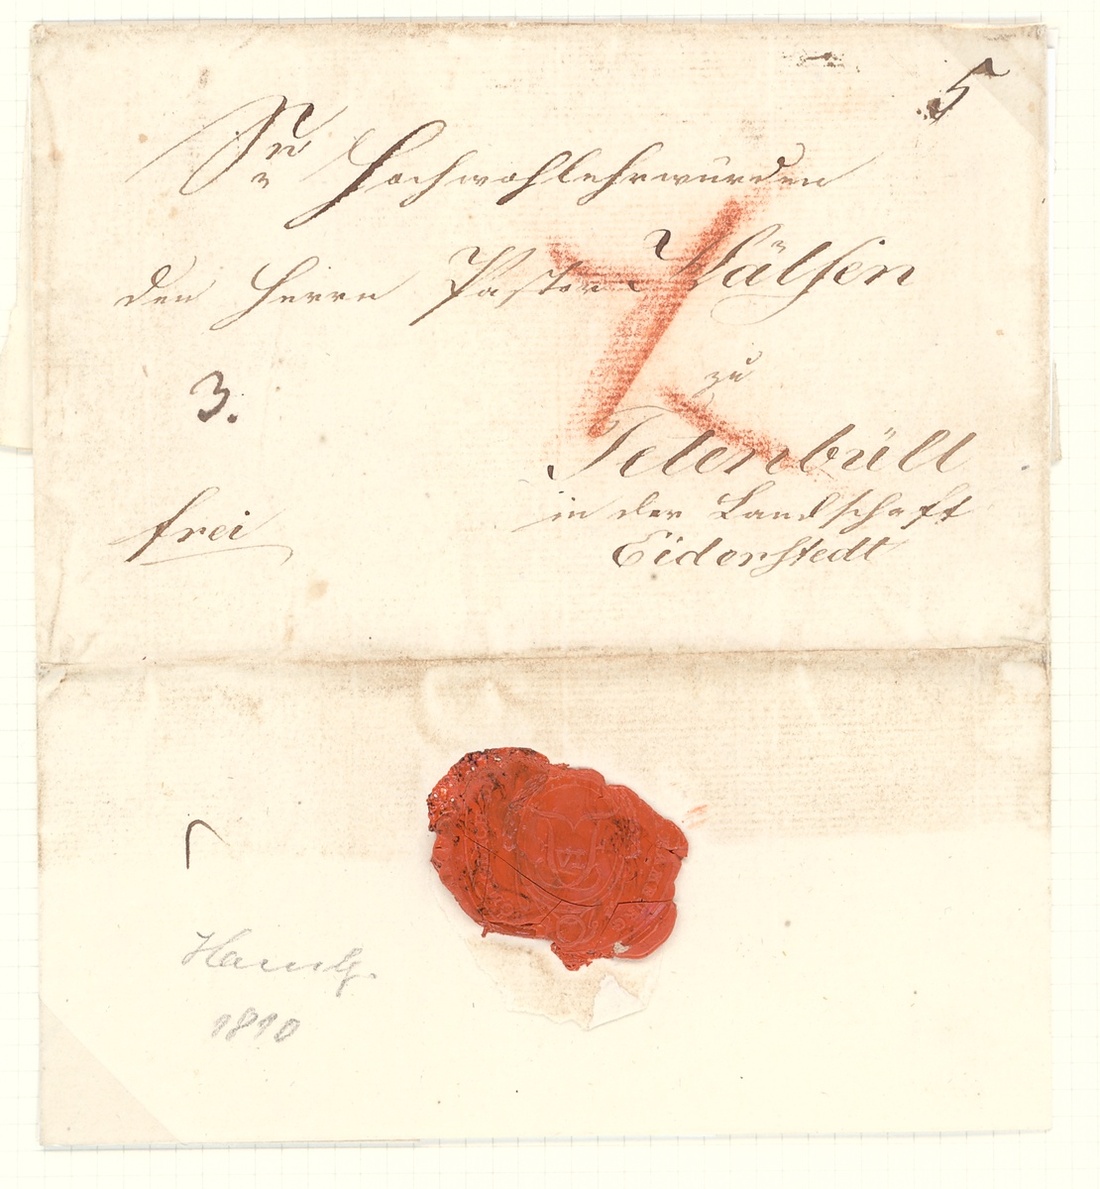 5
Sr Hochwohlehrwürden
den Herrn Pastor Wälsen
3.
zu
Tetenbüll
frei
in der Landschaft
Eiderstedt
Hambg.
1810